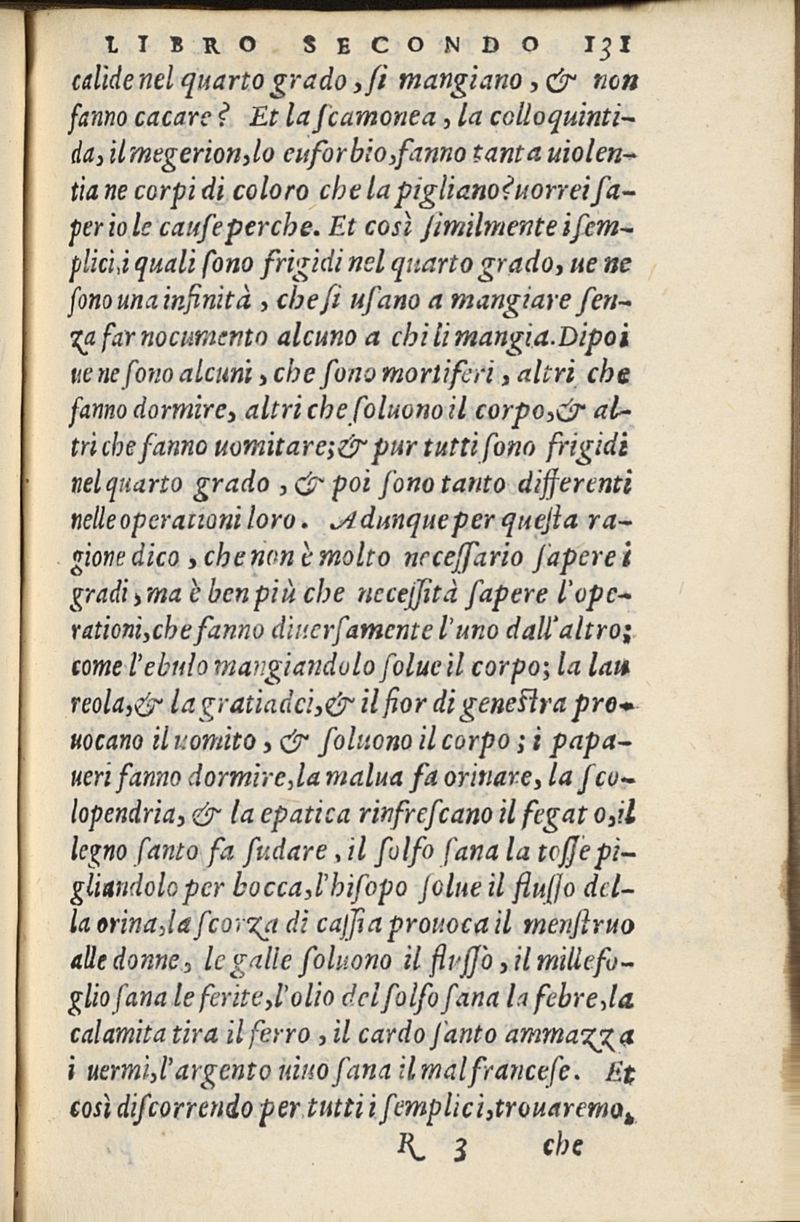 LIBRO SECONDO 131
calide nel quarto grado, ſi mangiano, & non
fanno cacare? Et la ſcamonea, la colloquinti-
da, il megerion, lo euforbio, fanno tanta uiolen-
tia ne corpi di coloro che la pigliano? uorrei ſa-
per io le cauſe perche. Et così ſimilmente i ſem-
plici, i quali ſono frigidi nel quarto grado, ue ne
ſono una infinità, che ſi uſano a mangiare ſen-
za far nocumento alcuno a chi li mangia. Dipoi
ue ne ſono alcuni, che ſono mortiferi, altri che
fanno dormire, altri che ſoluono il corpo, & al-
tri che fanno uomitare; & pur tutti ſono frigidi
nel quarto grado, & poi ſono tanto differenti
nelle operationi loro. Adunque per queſta ra-
gione dico, che non è molto neceſſario ſapere i
gradi, ma è ben più che neceſſità ſapere l'ope-
rationi, che fanno diuerſamente l'uno dall'altro;
come l'ebulo mangiandolo ſolue il corpo; la lau
reola, & la gratiadei, & il fior di geneſtra pro-
uocano il uomito, & ſoluono il corpo; i papa-
ueri fanno dormire, la malua fa orinare, la ſco-
lopendria, & la epatica rinfreſcano il fegato, il
legno ſanto fa ſudare, il ſolfo ſana la toſſe pi-
gliandolo per bocca, l'hiſopo ſolue il fluſſo del-
la orina, la ſcorza di caſſia prouoca il menſtruo
alle donne, le galle ſoluono il fluſſo, il millefo-
glio ſana le ferite, l'olio del ſolfo ſana la febre, la
calamita tira il ferro, il cardo ſanto ammazza
i uermi, l'argento uiuo ſana il mal franceſe. Et
così diſcorrendo per tutti i ſemplici, trouaremo,
R 3 che